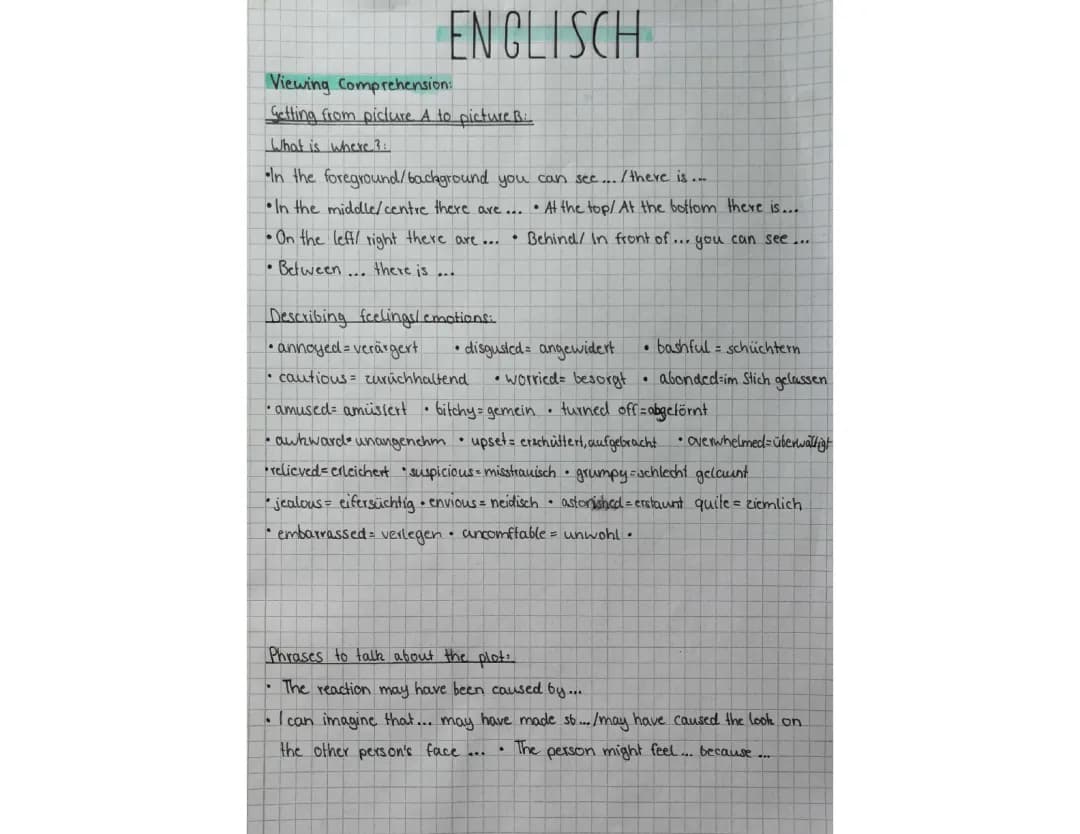 ENGLISCH
Viewing Comprehension:
Getting from picture A to picture B:
What is where?:
•In the foreground/background you can see... /there is ...
•In the middle/centre there are ... • At the top/ At the bottom there is...
•On the left/ right there are ... • Behind/ In front of ... you can see ...
• Between ... there is ...
Describing feelings/emotions:
• annoyed = verärgert • disgusted = angewidert • bashful = schüchtern
• cautious = zurückhaltend • worried = besorgt • abonded=im Stich gelassen
• amused= amüsiert • bitchy = gemein • turned off=abgetörnt
• awkward= unangenehm • upset = erschüttert, aufgebracht • overwhelmed=überwältigt
•relieved= erleichert • suspicious = misstrauisch • grumpy=schlecht gelaunt
• jealous = eifersüchtig • envious = neidisch • astonished = erstaunt quite = ziemlich
• embarrassed = verlegen • uncomftable = unwohl •
Phrases to talk about the plot:
• The reaction may have been caused by ...
• I can imagine that... may have made sb ... /may have caused the look on
the other person's face ... • The person might feel ... because ...